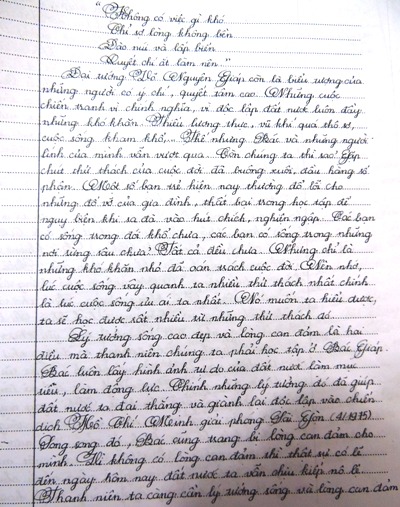 "Không có việc gì khó
Chỉ sợ lòng không bền
Đào núi và lấp biển
Quyết chí ắt làm nên."
Đại tướng Võ Nguyên Giáp còn là biểu tượng của
những người có ý chí, quyết tâm cao. Những cuộc
chiến tranh vì chính nghĩa, vì độc lập đất nước luôn đầy
những khó khăn. Thiếu lương thực, vũ khí quá thô sơ,
cuộc sống kham khổ,... Thế nhưng Bác và những người
lính của mình vẫn vượt qua. Còn chúng ta thì sao? Gặp
chút thử thách của cuộc đời đã buông xuôi, đầu hàng số
phận. Một số bạn trẻ hiện nay thường đổ lỗi cho
những đổ vỡ của gia đình, thất bại trong học tập để
ngụy biện khi sa đà vào hút chích, nghiện ngập. Các bạn
có sống trong đói khổ chưa, các bạn có sống trong những
nơi rừng sâu chưa? Tất cả đều chưa. Nhưng chỉ là
những khó khăn nhỏ đã oán trách cuộc đời. Nên nhớ,
lúc cuộc sống vây quanh ta nhiều thử thách nhất chính
là lúc cuộc sống ưu ái ta nhất. Nó muốn ta hiểu được,
ta sẽ học được rất nhiều từ những thử thách đó.
Lý tưởng sống cao đẹp và lòng can đảm là hai
điều mà thanh niên chúng ta phải học tập ở Bác Giáp.
Bác luôn lấy hình ảnh tự do của đất nước làm mục
tiêu, làm động lực. Chính những lý tưởng đó đã giúp
đất nước ta đại thắng và giành lại độc lập vào chiến
dịch Hồ Chí Minh giải phóng Sài Gòn (4/1975).
Song song đó, Bác cũng trang bị lòng can đảm cho
mình. Vì không có lòng can đảm thì thật sự có lẽ
đến ngày hôm nay đất nước ta vẫn chịu kiếp nô lệ.
Thanh niên ta càng cần lý tưởng sống và lòng can đảm